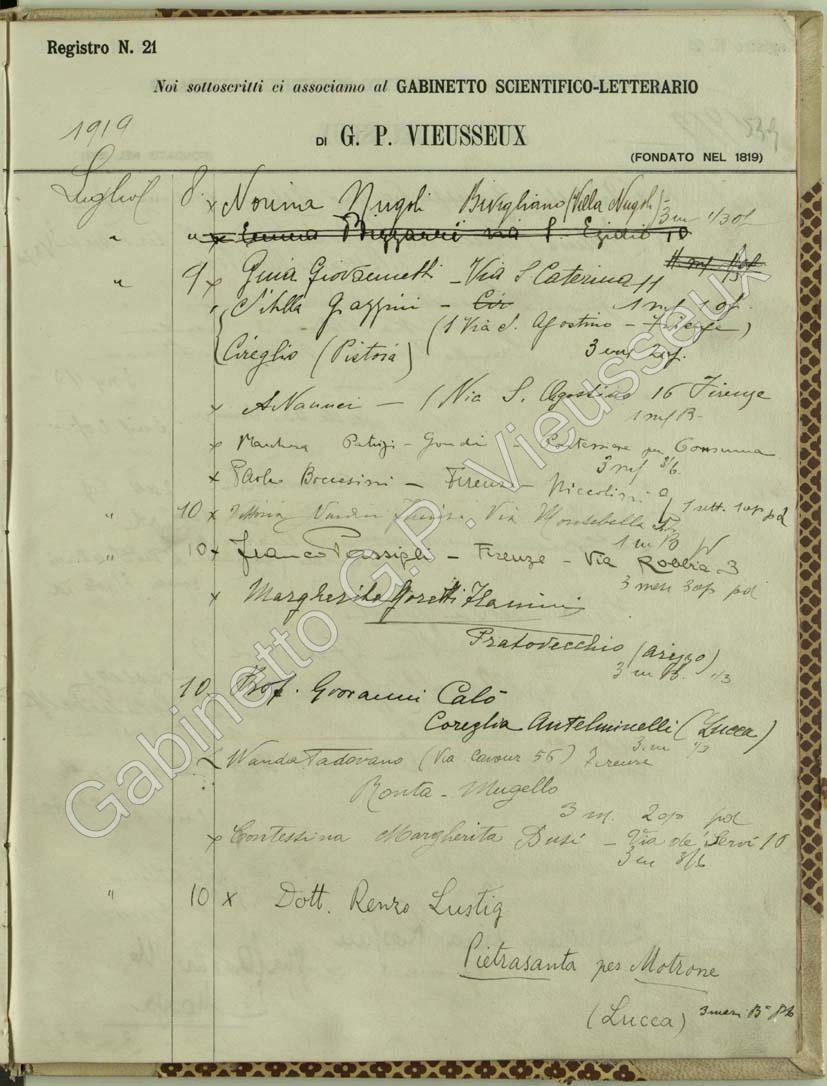 Registro N. 21
Noi sottoscritti ci associamo al GABINETTO SCIENTIFICO-LETTERARIO
DI G. P. VIEUSSEUX
(FONDATO NEL 1819)
1919
Luglio 8 x Norina Nugoli Bivigliano (Villa Nugoli) 3 m 1/3 of
" " x Emma via S. Egidio 10
" 9 x Giovannetti - Via S Caterina 11
1 m 1 of
Cireglio (Pistoia) (1 Via S. Agostino - Firenze)
3 m 2 of.
x A. Nannei - (Via S. Agostino 16 Firenze
1 m B-
x Patrizi - Gondi - Pontassieve per Consuma
3 m 3/6.
x Paolo - Firenze - Niccolini 9
" 10 x Via Montebello 1 sett. 1 op pd
1 m B
" 10 x Franco Passigli - Firenze - Via Robbia 3
3 mesi 3 op pd
x Margherita Goretti Flamini
Pratovecchio (Arezzo)
3 m B. 1/3
10 Prof. Giovanni Calò
Coreglia Antelminelli (Lucca)
3 m 1/3
Wanda Padovano (Via Cavour 56) Firenze
Ronta - Mugello
3 m. 2 op pd
x Contessina Margherita Busi - Via de' Servi 10
3 m 8/6
" 10 x Dott. Renzo Lustig
Pietrasanta per Motrone
(Lucca) 3 mesi B
Gabinetto G.P. Vieusseux